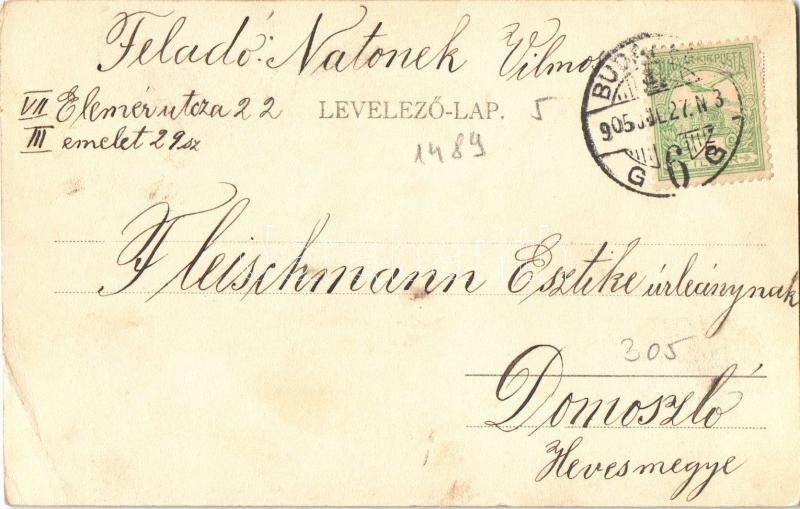 Feladó: Natonek Vilmos
VII Elemér utcza 22
III emelet 29 sz
LEVELEZŐ-LAP.
5
1489
905 JUL. 27. N 3
G 6 B
Fleischmann Esztike úrleánynak
305
Domoszló
Hevesmegye